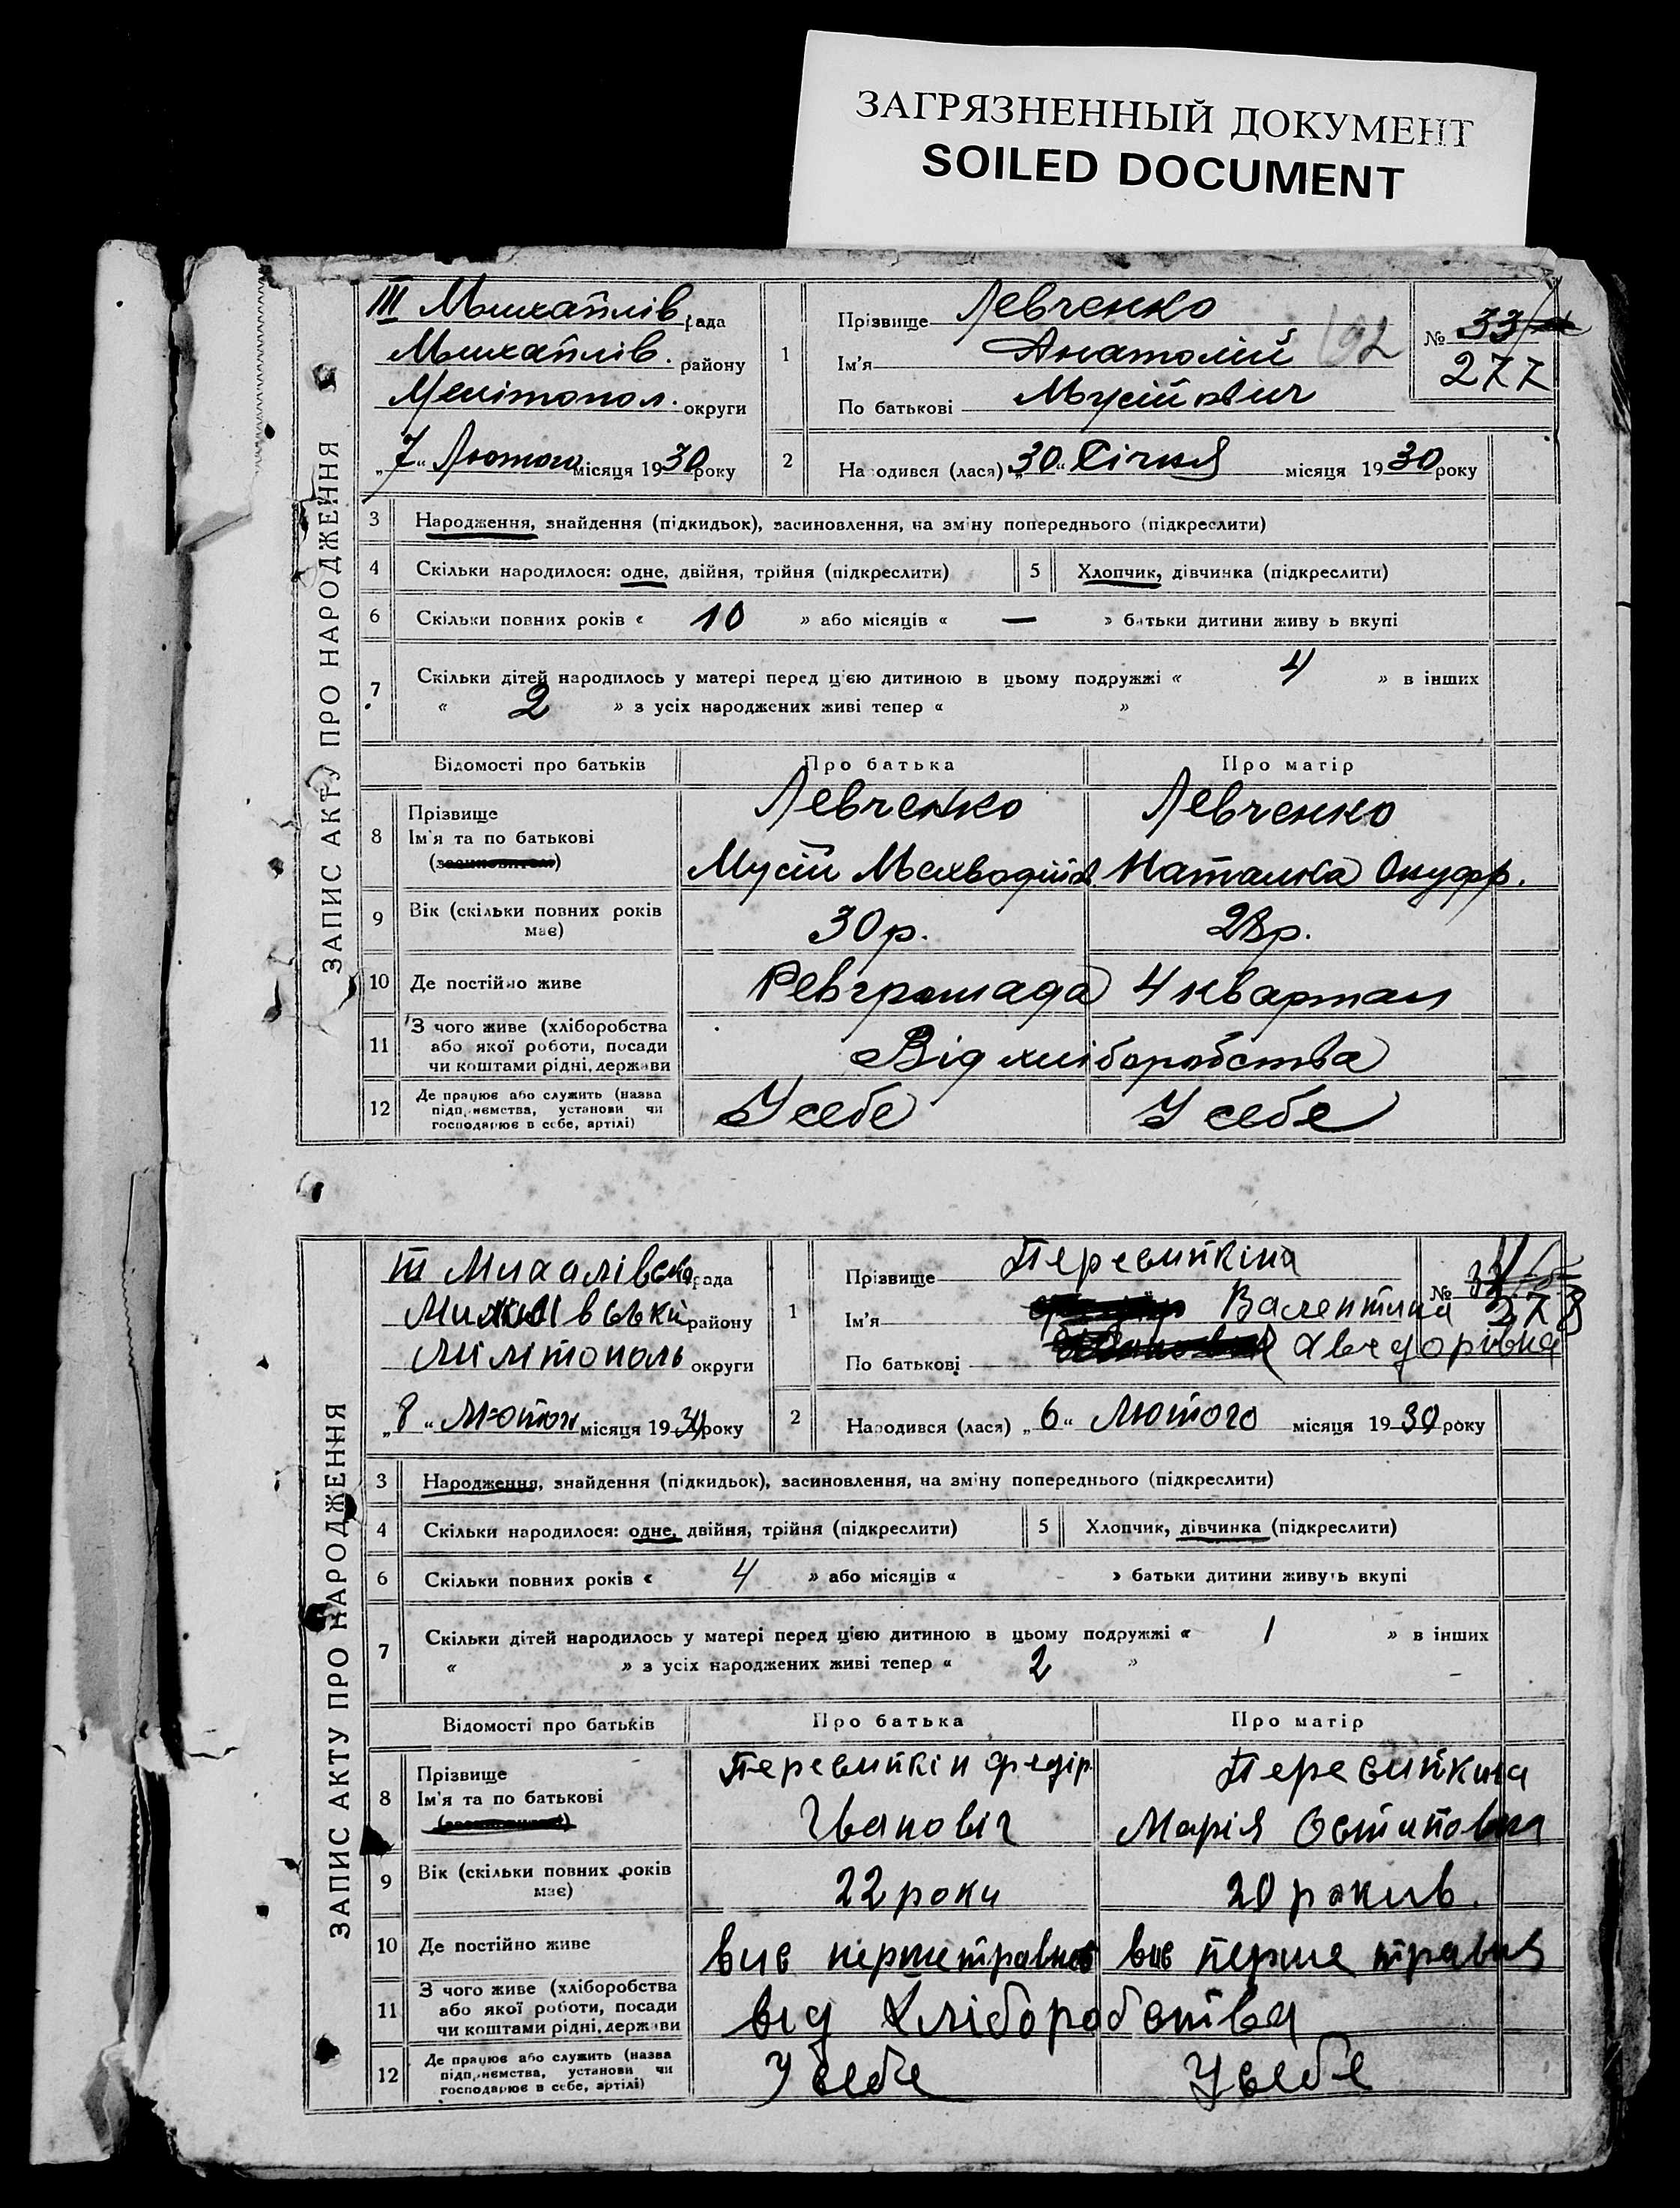 ЗАГРЯЗНЕННЫЙ ДОКУМЕНТ
SOILED DOCUMENT
ЗАПИС АКТУ ПРО НАРОДЖЕННЯ
III Михайлів. рада
Михайлів. району
Мелітопол. округи
„7“ Лютого місяця 1930 року
1
Прізвище Левченко
Ім'я Анатолій
По батькові Мусійович
192
№ 33
277
2
Народився (лася) „30“ Січня місяця 1930 року
3 Народження, знайдення (підкидьок), засиновлення, на зміну попереднього (підкреслити)
4 Скільки народилося: одне, двійня, трійня (підкреслити) 5 Хлопчик, дівчинка (підкреслити)
6 Скільки повних років « 10 » або місяців « — » батьки дитини живуть вкупі
7 Скільки дітей народилось у матері перед цією дитиною в цьому подружжі « 4 » в інших
« 2 » з усіх народжених живі тепер « »
Відомості про батьків Про батька Про матір
8 Прізвище Левченко Левченко
Ім'я та по батькові
Мусій Наталка Онуфр.
9 Вік (скільки повних років має) 30 р. 28 р.
10 Де постійно живе Ревгромада 4 квартал
11 З чого живе (хліборобства
або якої роботи, посади
чи коштами рідні, держави
Від хліборобства
12 Де працює або служить (назва
підприємства, установи чи
господарює в себе, артілі)
У себе У себе
ЗАПИС АКТУ ПРО НАРОДЖЕННЯ
III Михалівська рада
району
Милітополь округи
„8“ місяця 1930 року
1
Прізвище
Ім'я Валентина
По батькові
№
278
2
Народився (лася) „6“ Лютого місяця 1930 року
3 Народження, знайдення (підкидьок), засиновлення, на зміну попереднього (підкреслити)
4 Скільки народилося: одне, двійня, трійня (підкреслити) 5 Хлопчик, дівчинка (підкреслити)
6 Скільки повних років « 4 » або місяців « - » батьки дитини живуть вкупі
7 Скільки дітей народилось у матері перед цією дитиною в цьому подружжі « 1 » в інших
« » з усіх народжених живі тепер « 2 »
Відомості про батьків Про батька Про матір
8 Прізвище
Ім'я та по батькові
Федір
Івановіч Марія Остиповна
9 Вік (скільки повних років має) 22 роки 20 рокив.
10 Де постійно живе перше травня
11 З чого живе (хліборобства
або якої роботи, посади
чи коштами рідні, держави
від хліборобства
12 Де працює або служить (назва
підприємства, установи чи
господарює в себе, артілі)
У себе У себе